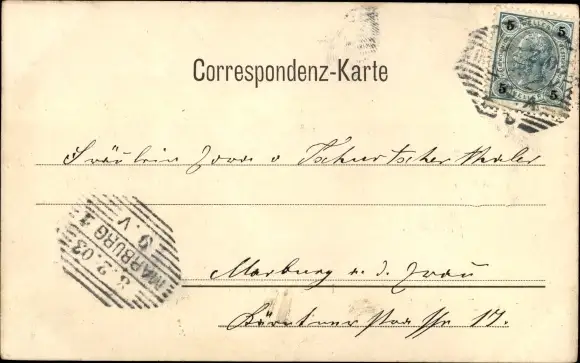 5 5
5 5
Correspondenz-Karte
Fräulein Dora v Tschurtschenthaler
MARBURG 1
3.2.03
9.V
Marburg a. d. Drau
Kärntnerstrasse 17.